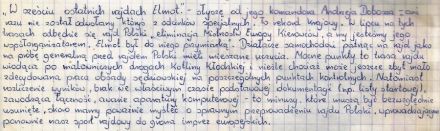 "W sześciu ostatnich rajdach Elmot" - słyszę od jego komandora Andrzeja Dobosza - ani
razu nie został odwołany któryś z odcinków specjalnych. To rekord krajowy. W lipcu na tych
trasach odbędzie się rajd Polski - eliminacja Mistrzostw Europy Kierowców, a my jesteśmy jego
współorganizatorem. Elmot był do niego przymiarką". Działacze samochodowi patrząc na rajd jako
na próbę generalną przed rajdem Polski mieli mieszane uczucia. Mocne punkty to trasa rajdu
wiodąca po malowniczych drogach Kotliny Kłodzkiej i niesłychanie może jeszcze zbyt mało
zdecydowana praca obsady sędziowskiej na poszczególnych punktach kontrolnych. Natomiast
rozliczenie wyników, brak we właściwym czasie podstawowej dokumentacji (np. listy startowej),
zawodząca łączność, awarie aparatury komputerowej - to minusy, które muszą być bezwzględnie
usunięte, skoro mamy poważnie myśleć o sprawnym przeprowadzeniu rajdu Polski, wprowadzającego
ponownie nasz sport rajdowy do grona imprez europejskich.